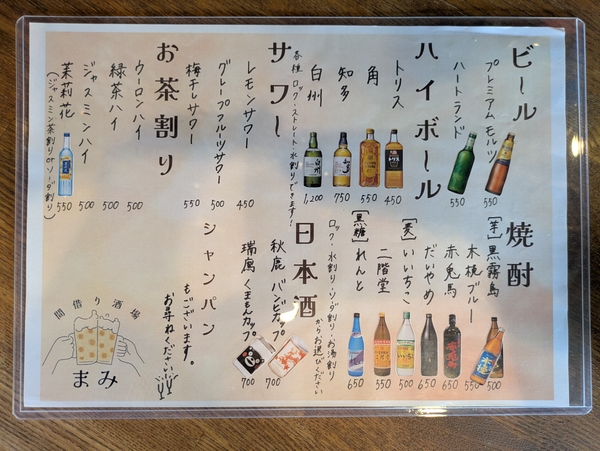 ビール
プレミアムモルツ 550
ハートランド 550
ハイボール
トリス 450
角 450
知多 750
白州 1,200
各種ロック・ストレート・水割りできます!
サワー
レモンサワー 450
グレープフルーツサワー 500
梅干しサワー 550
お茶割り
ウーロンハイ 500
緑茶ハイ 500
ジャスミンハイ 500
茉莉花 550
(ジャスミン茶割りorソーダ割り)
焼酎
[芋]黒霧島 500
木挽ブルー 550
赤兎馬 650
だいやめ 650
[麦]いいちこ 500
二階堂 550
[黒糖]れんと 650
ロック・水割り・ソーダ割り・お湯割り
からお選びください
日本酒
秋鹿 バンビカップ 700
瑞鷹 くまもんカップ 700
シャンパン
もございます。
お尋ねください
間借り酒場
まみ